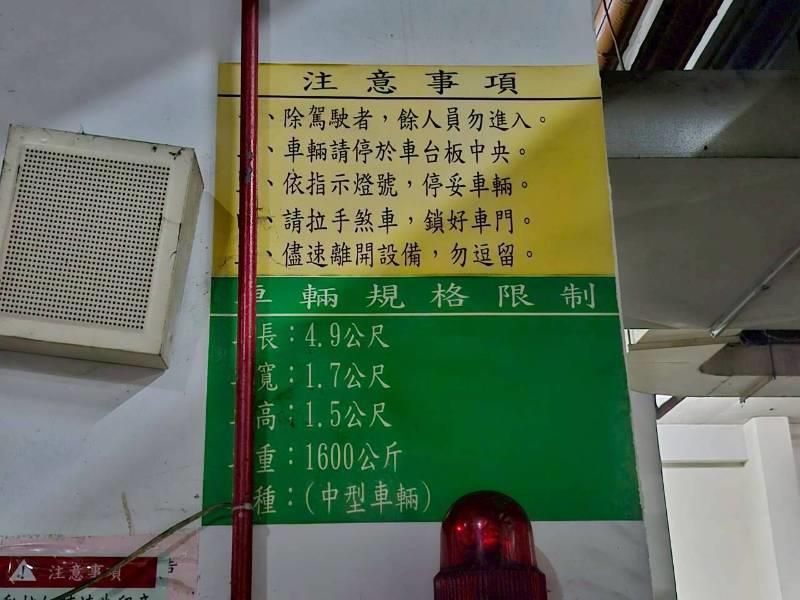 注意事項
、除駕駛者，餘人員勿進入。
、車輛請停於車台板中央。
、依指示燈號，停妥車輛。
、請拉手煞車，鎖好車門。
、儘速離開設備，勿逗留。
車輛規格限制
長：4.9公尺
寬：1.7公尺
高：1.5公尺
重：1600公斤
種：(中型車輛)
注意事項